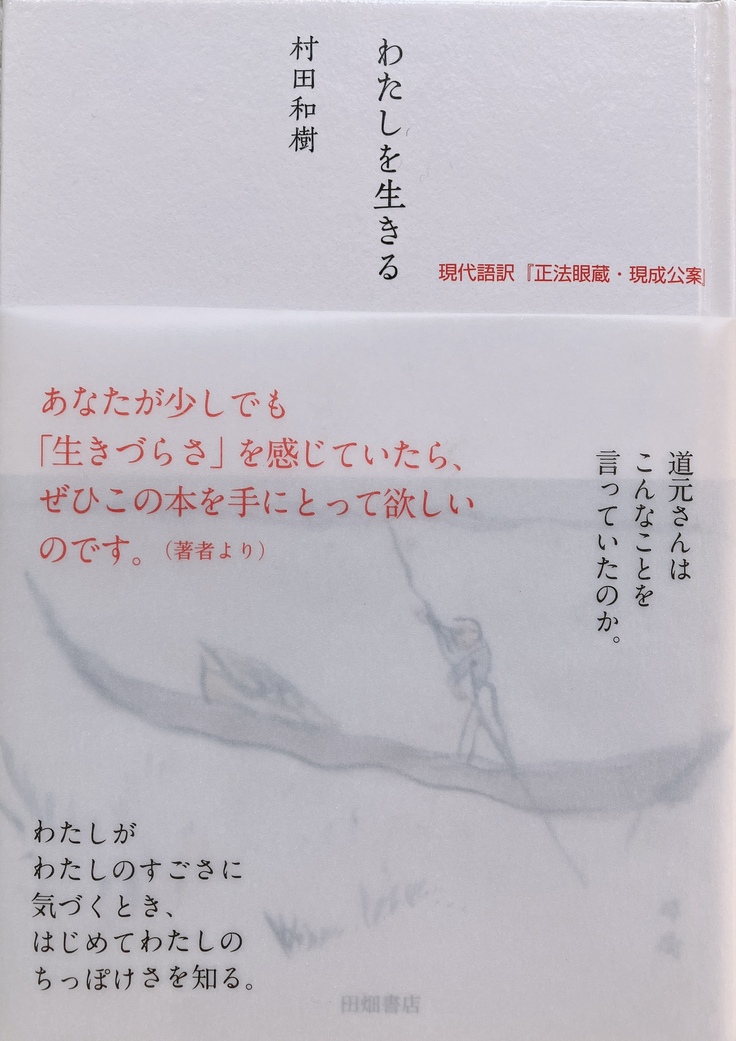 わたしを生きる
村田和樹
現代語訳『正法眼蔵・現成公案』
あなたが少しでも
「生きづらさ」を感じていたら、
ぜひこの本を手にとって欲しい
のです。（著者より）
道元さんは
こんなことを
言っていたのか。
わたしが
わたしのすごさに
気づくとき、
はじめてわたしの
ちっぽけさを知る。
田畑書店